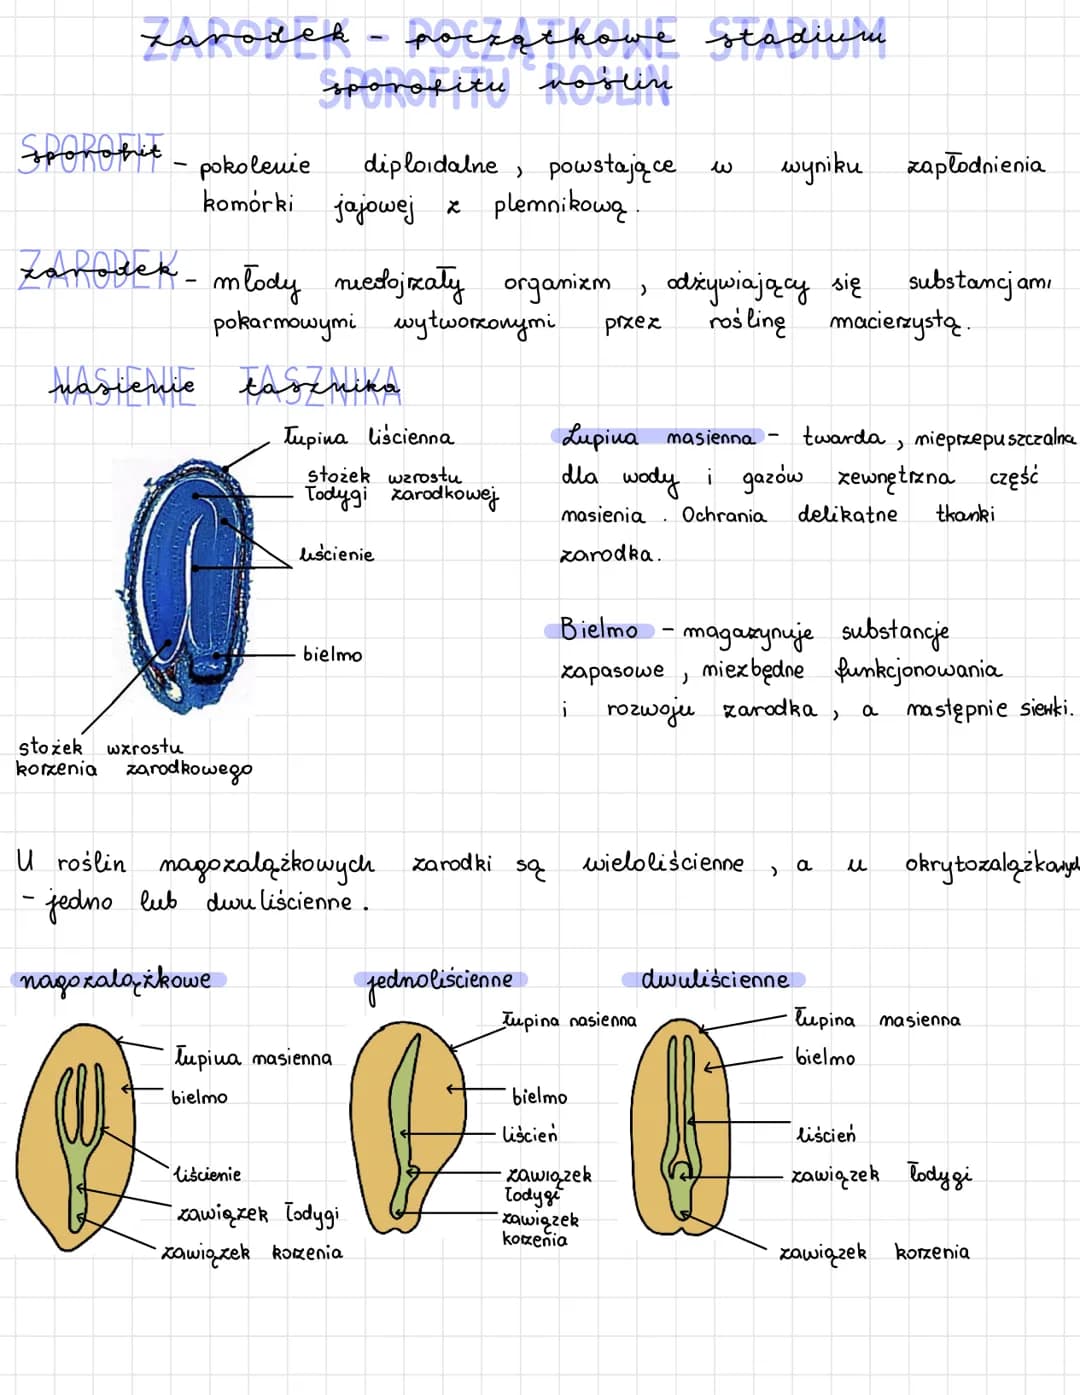 zarodek - początkowe stadium
sporofitu roślin
sporofit - pokolenie diploidalne , powstające w wyniku zapłodnienia
komórki jajowej z plemnikową .
zarodek - młody niedojrzały organizm , odżywiający się substancjami
pokarmowymi wytworzonymi przez roślinę macierzystą .
nasienie tasznika
łupina liścienna
stożek wzrostu
łodygi zarodkowej
liścienie
bielmo
stożek wzrostu
korzenia zarodkowego
Łupina nasienna - twarda , nieprzepuszczalna
dla wody i gazów zewnętrzna część
nasienia . Ochrania delikatne tkanki
zarodka .
Bielmo - magazynuje substancje
zapasowe , niezbędne funkcjonowania
i rozwoju zarodka , a następnie siewki.
U roślin nagozalążkowych zarodki są wieloliścienne , a u okrytozalążkowych
- jedno lub dwuliścienne .
nagozalążkowe
łupina nasienna
bielmo
liścienie
zawiązek łodygi
zawiązek korzenia
jednoliścienne
łupina nasienna
bielmo
liścień
zawiązek
łodygi
zawiązek
korzenia
dwuliścienne
łupina nasienna
bielmo
liścień
zawiązek łodygi
zawiązek korzenia